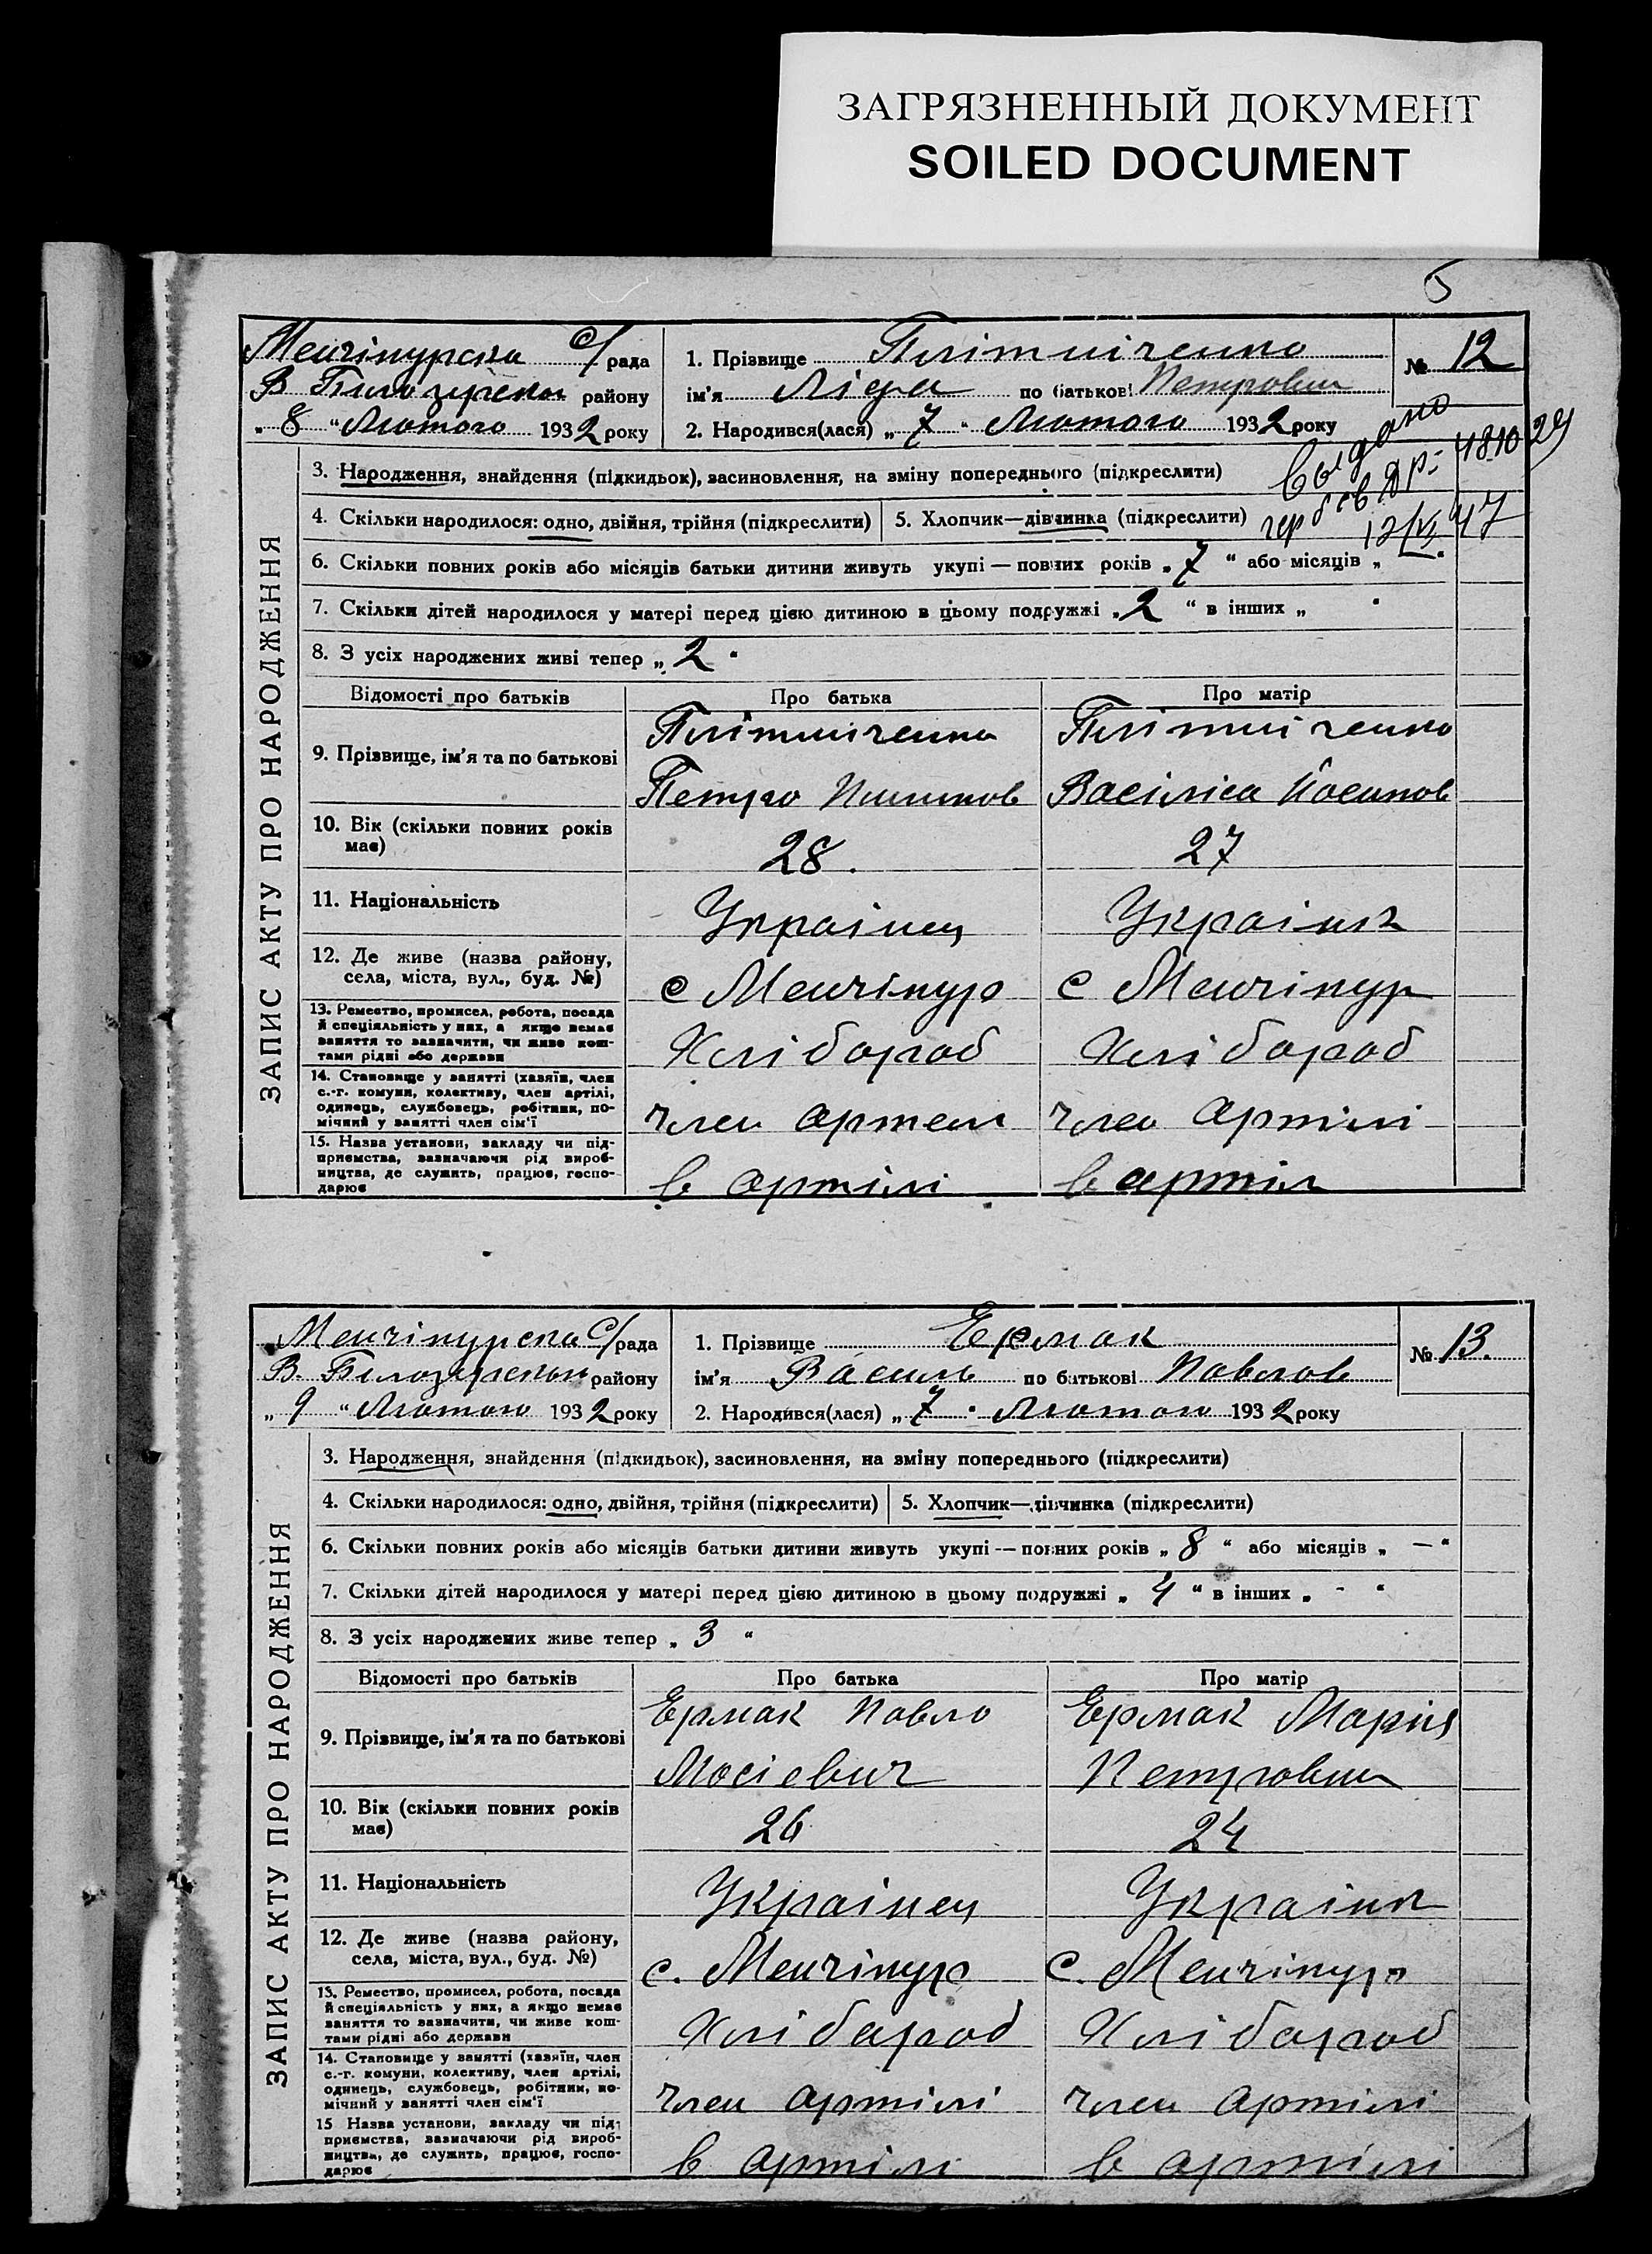 ЗАГРЯЗНЕННЫЙ ДОКУМЕНТ
SOILED DOCUMENT
5
Менчікурска с/рада
В Білозерском району
„ 8 “ Лютого 1932 року
1. Прізвище Плітніченко
ім'я Ліда по батькові Петровна
2. Народився(лася) „ 7 “ Лютого 1932 року
№ 12
ЗАПИС АКТУ ПРО НАРОДЖЕННЯ
3. Народження, знайдення (підкидьок), засиновлення, на зміну попереднього (підкреслити)
Выдано
4. Скільки народилося: одно, двійня, трійня (підкреслити)
5. Хлопчик—дівчинка (підкреслити)
47
6. Скільки повних років або місяців батьки дитини живуть укупі — повних років „ 7 “ або місяців „ — “
7. Скільки дітей народилося у матері перед цією дитиною в цьому подружжі „ 2 “ в інших „ “
8. З усіх народжених живі тепер „ 2 “
Відомості про батьків Про батька Про матір
9. Прізвище, ім'я та по батькові
Плітніченко
Петро
Плітніченко
Васіліса Йосипов
10. Вік (скільки повних років має)
28.
27
11. Національність
Украінец
Украінк
12. Де живе (назва району, села, міста, вул., буд. №)
с Менчікур
с Менчікур
13. Ремество, промисел, робота, посада й спеціяльність у них, а якщо немає заняття то зазначити, чи живе коштами рідні або держави
Хлібороб
Хлібороб
14. Становище у занятті (хазяїн, член с.-г. комуни, колективу, член артілі, одинець, службовець, робітник, помічний у занятті член сім'ї
член артел
член артілі
15. Назва установи, закладу чи підприємства, зазначаючи рід виробництва, де служить, працює, господарює
в артілі
в артіл
Менчікурска с/рада
В. Білозерском району
„ 9 “ Лютого 1932 року
1. Прізвище Ермак
ім'я Василь по батькові Павлов
2. Народився(лася) „ 7 “ Лютого 1932 року
№ 13.
ЗАПИС АКТУ ПРО НАРОДЖЕННЯ
3. Народження, знайдення (підкидьок), засиновлення, на зміну попереднього (підкреслити)
4. Скільки народилося: одно, двійня, трійня (підкреслити)
5. Хлопчик—дівчинка (підкреслити)
6. Скільки повних років або місяців батьки дитини живуть укупі — повних років „ 8 “ або місяців „ — “
7. Скільки дітей народилося у матері перед цією дитиною в цьому подружжі „ 4 “ в інших „ - “
8. З усіх народжених живе тепер „ 3 “
Відомості про батьків Про батька Про матір
9. Прізвище, ім'я та по батькові
Ермак Павло
Мосіевич
Ермак Марія
Петровна
10. Вік (скільки повних років має)
26
24
11. Національність
Украінец
Украінк
12. Де живе (назва району, села, міста, вул., буд. №)
с. Менчікур
с. Менчікур
13. Ремество, промисел, робота, посада й спеціяльність у них, а якщо немає заняття то зазначити, чи живе коштами рідні або держави
Хлібороб
Хлібороб
14. Становище у занятті (хазяїн, член с.-г. комуни, колективу, член артілі, одинець, службовець, робітник, помічний у занятті член сім'ї
член артілі
член артілі
15 Назва установи, закладу чи підприємства, зазначаючи рід виробництва, де служить, працює, господарює
в артілі
в артілі